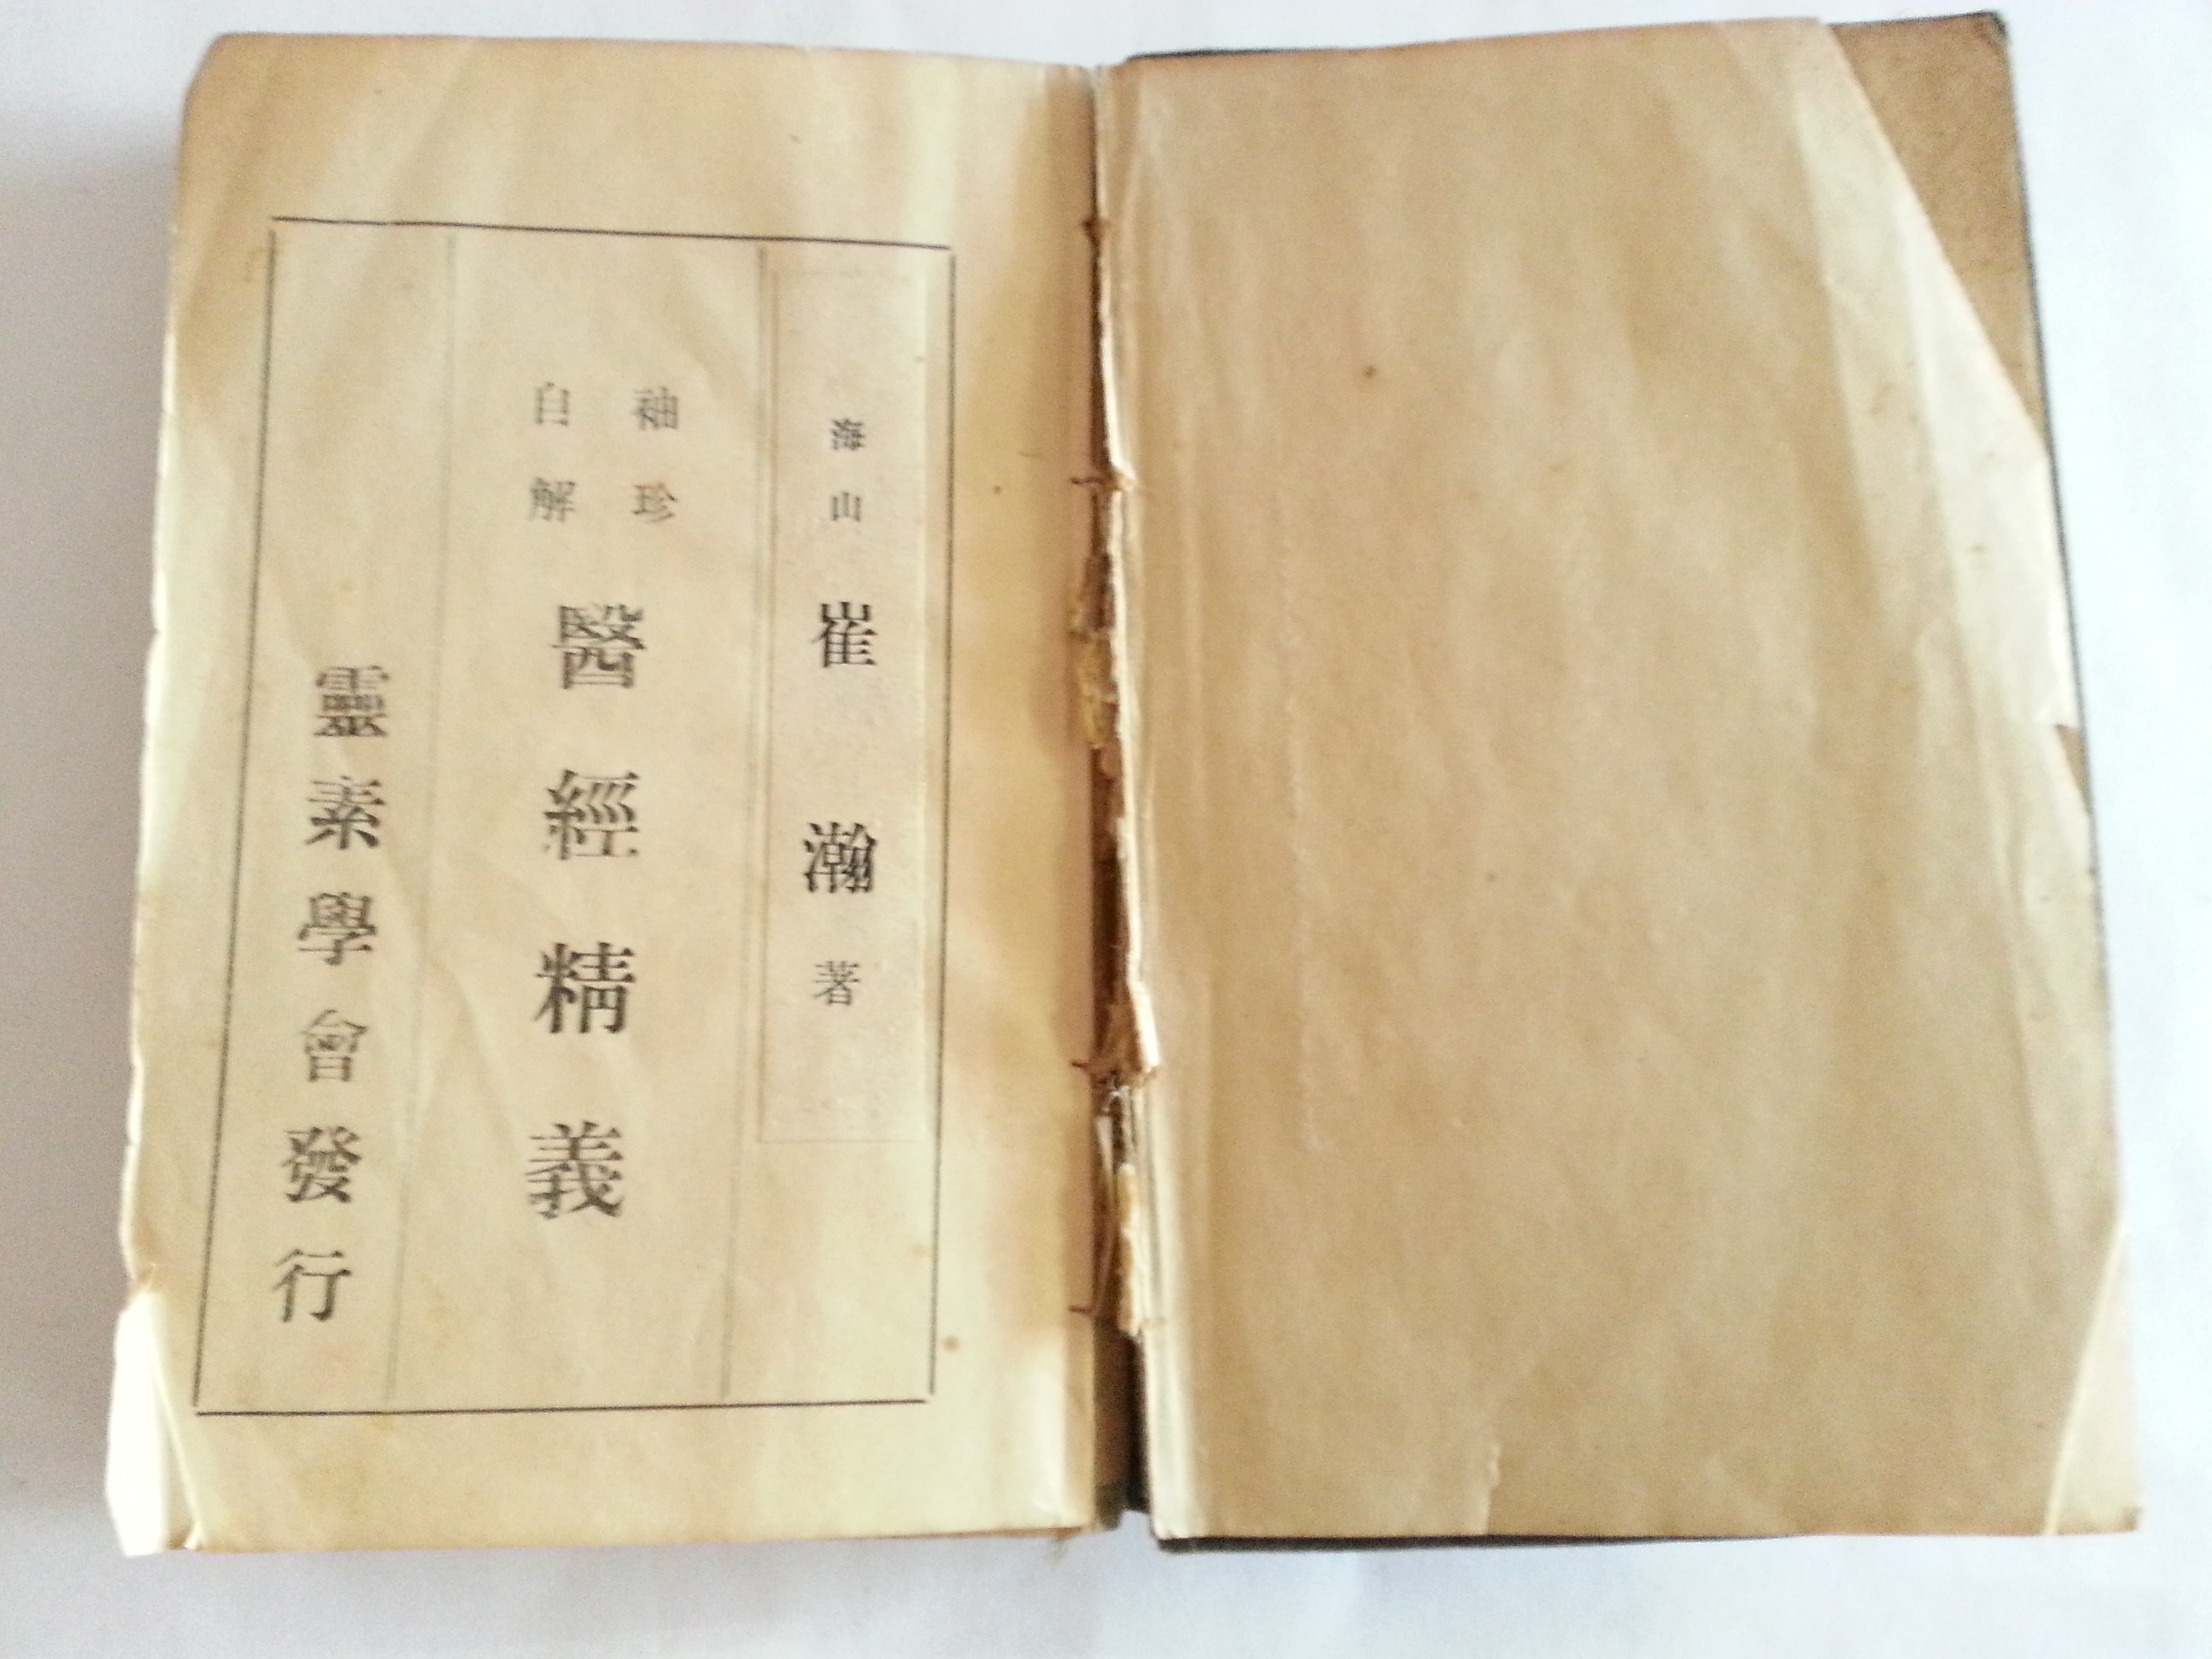 海山 崔瀚 著
袖珍
自解
醫經精義
靈素學會發行